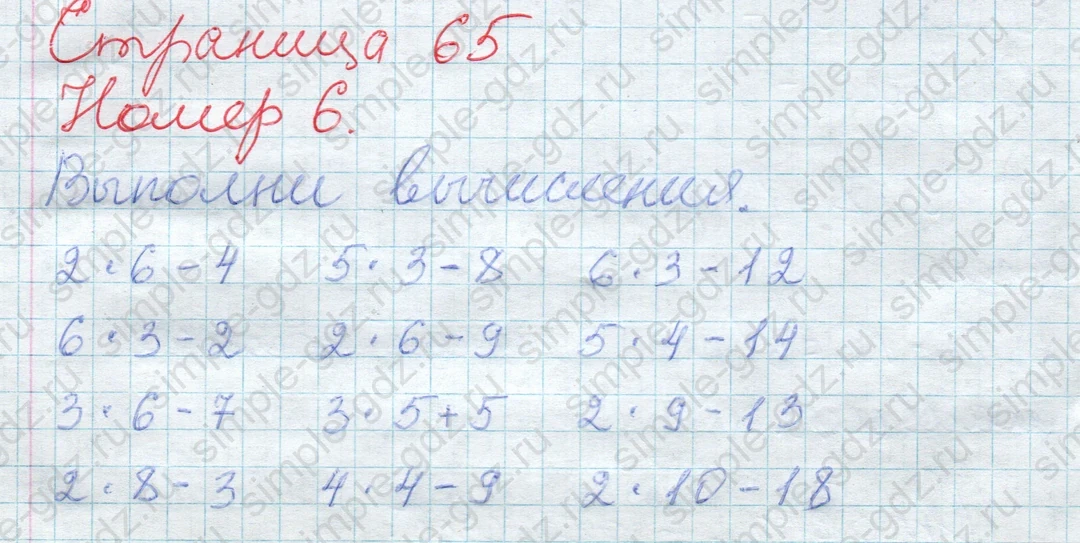 Страница 65
Номер 6.
Выполни вычисления.
2·6-4 5·3-8 6·3-12
6·3-2 2·6-9 5·4-14
3·6-7 3·5+5 2·9-13
2·8-3 4·4-9 2·10-18
simple-gdz.ru